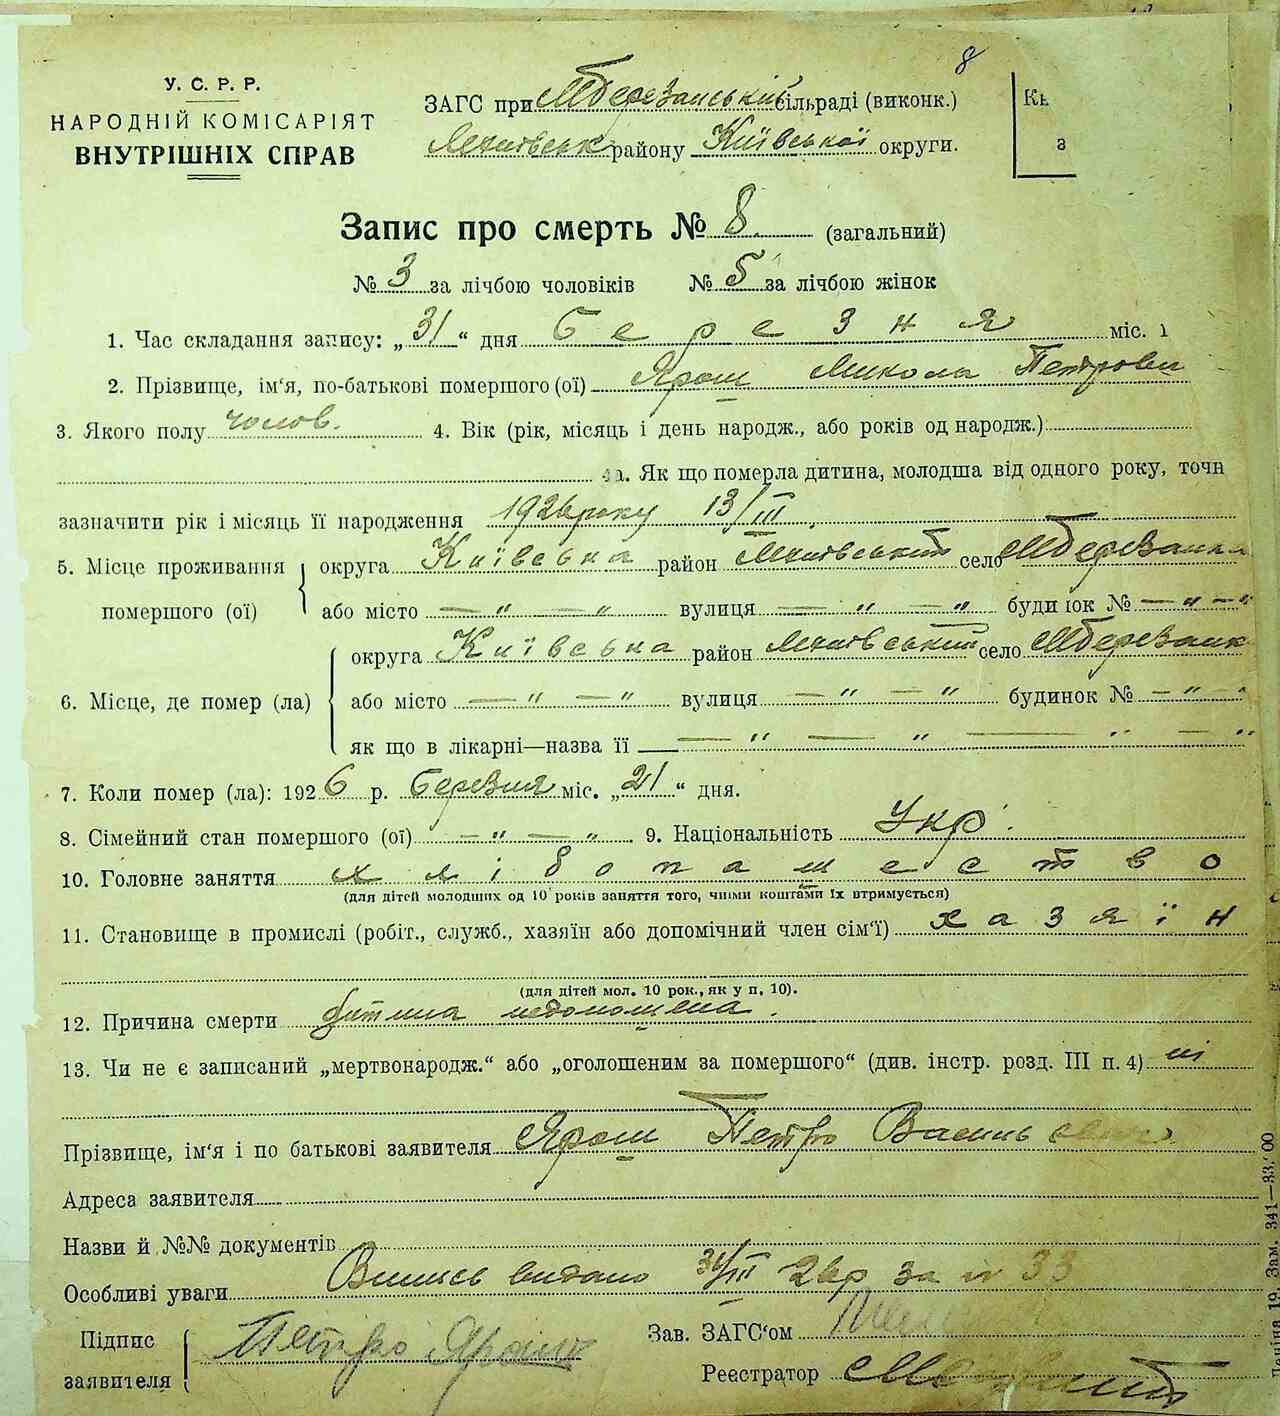 8
У. С. Р. Р.
НАРОДНІЙ КОМІСАРІЯТ
ВНУТРІШНІХ СПРАВ
ЗАГС при МБерезанській сільраді (виконк.)
району Київської округи.
Кн
з
Запис про смерть № 8 (загальний)
№ 3 за лічбою чоловіків № 5 за лічбою жінок
1. Час складання запису: „31“ дня березня міс. 1
2. Прізвище, ім‘я, по-батькові помершого (ої) Ярош Микола Петрови
3. Якого полу чолов. 4. Вік (рік, місяць і день народж., або років од народж.):
4а. Як що померла дитина, молодша від одного року, точн
зазначити рік і місяць її народження 1926 року 13/III.
5. Місце проживання помершого (ої) округа Київська район село МБерезанка
або місто — „ — „ вулиця — „ — „ будинок № — „ — „
6. Місце, де помер (ла) округа Київська район село МБерезанк
або місто — „ — „ вулиця — „ — „ будинок № — „ —
як що в лікарні—назва її — „ — „ — „ — „
7. Коли помер (ла): 1926 р. березня міс. „21“ дня.
8. Сімейний стан помершого (ої) — „ — „ 9. Національність Укр.
10. Головне заняття хлібопашество
(для дітей молодших од 10 років заняття того, чиїми коштами їх втримується)
11. Становище в промислі (робіт., служб., хазяїн або допомічний член сім‘ї) хазяїн
(для дітей мол. 10 рок., як у п. 10).
12. Причина смерти дитина недоношена.
13. Чи не є записаний „мертвонародж.“ або „оголошеним за помершого“ (див. інстр. розд. III п. 4) ні
Прізвище, ім‘я і по батькові заявителя Ярош Петро Василь
Адреса заявителя
Назви й №№ документів
Особливі уваги Випись видано 31/III 26р за № 33
Підпис заявителя Петро Ярош
Зав. ЗАГС‘ом
Реєстратор
19. Зам. 341—33.